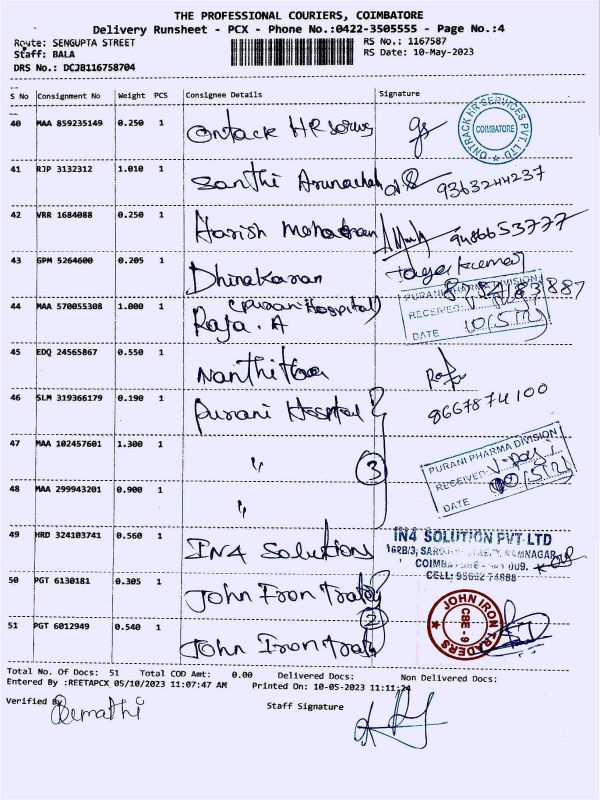 THE PROFESSIONAL COURIERS, COIMBATORE
Delivery Runsheet - PCX - Phone No.:0422-3505555 - Page No.:4
Route: SENGUPTA STREET RS No.: 1167587
Staff: BALA RS Date: 10-May-2023
DRS No.: DCJB116758704
S No Consignment No Weight PCS Consignee Details Signature
40 MAA 859235149 0.250 1 Ontack HR
ONTRACK HR SERVICES PVT. LTD COIMBATORE
41 RJP 3132312 1.010 1 Santhi Arunachalam 9363244237
42 VRR 1684088 0.250 1 Harish 9486653777
43 GPM 5264600 0.205 1 Dhinakaran
44 MAA 570055308 1.000 1 (Purani Hospital)
Raja. A
PURANI PHARMA DIVISION
RECEIVED
DATE
45 EDQ 24565867 0.550 1
46 SLM 319366179 0.190 1 Purani Hospital 8667874100
47 MAA 102457601 1.300 1 "
3
PURANI PHARMA DIVISION
RECEIVED
DATE
48 MAA 299943201 0.900 1 "
49 HRD 324103741 0.560 1 IN4 Solutions
IN4 SOLUTION PVT LTD
RAMNAGAR,
50 PGT 6130181 0.305 1 John Iron
2
51 PGT 6012949 0.540 1 John Iron
JOHN IRON TRADERS CBE - 9
Total No. Of Docs: 51 Total COD Amt: 0.00 Delivered Docs: Non Delivered Docs:
Entered By :REETAPCX 05/10/2023 11:07:47 AM Printed On: 10-05-2023 11:11:24
Verified By Staff Signature